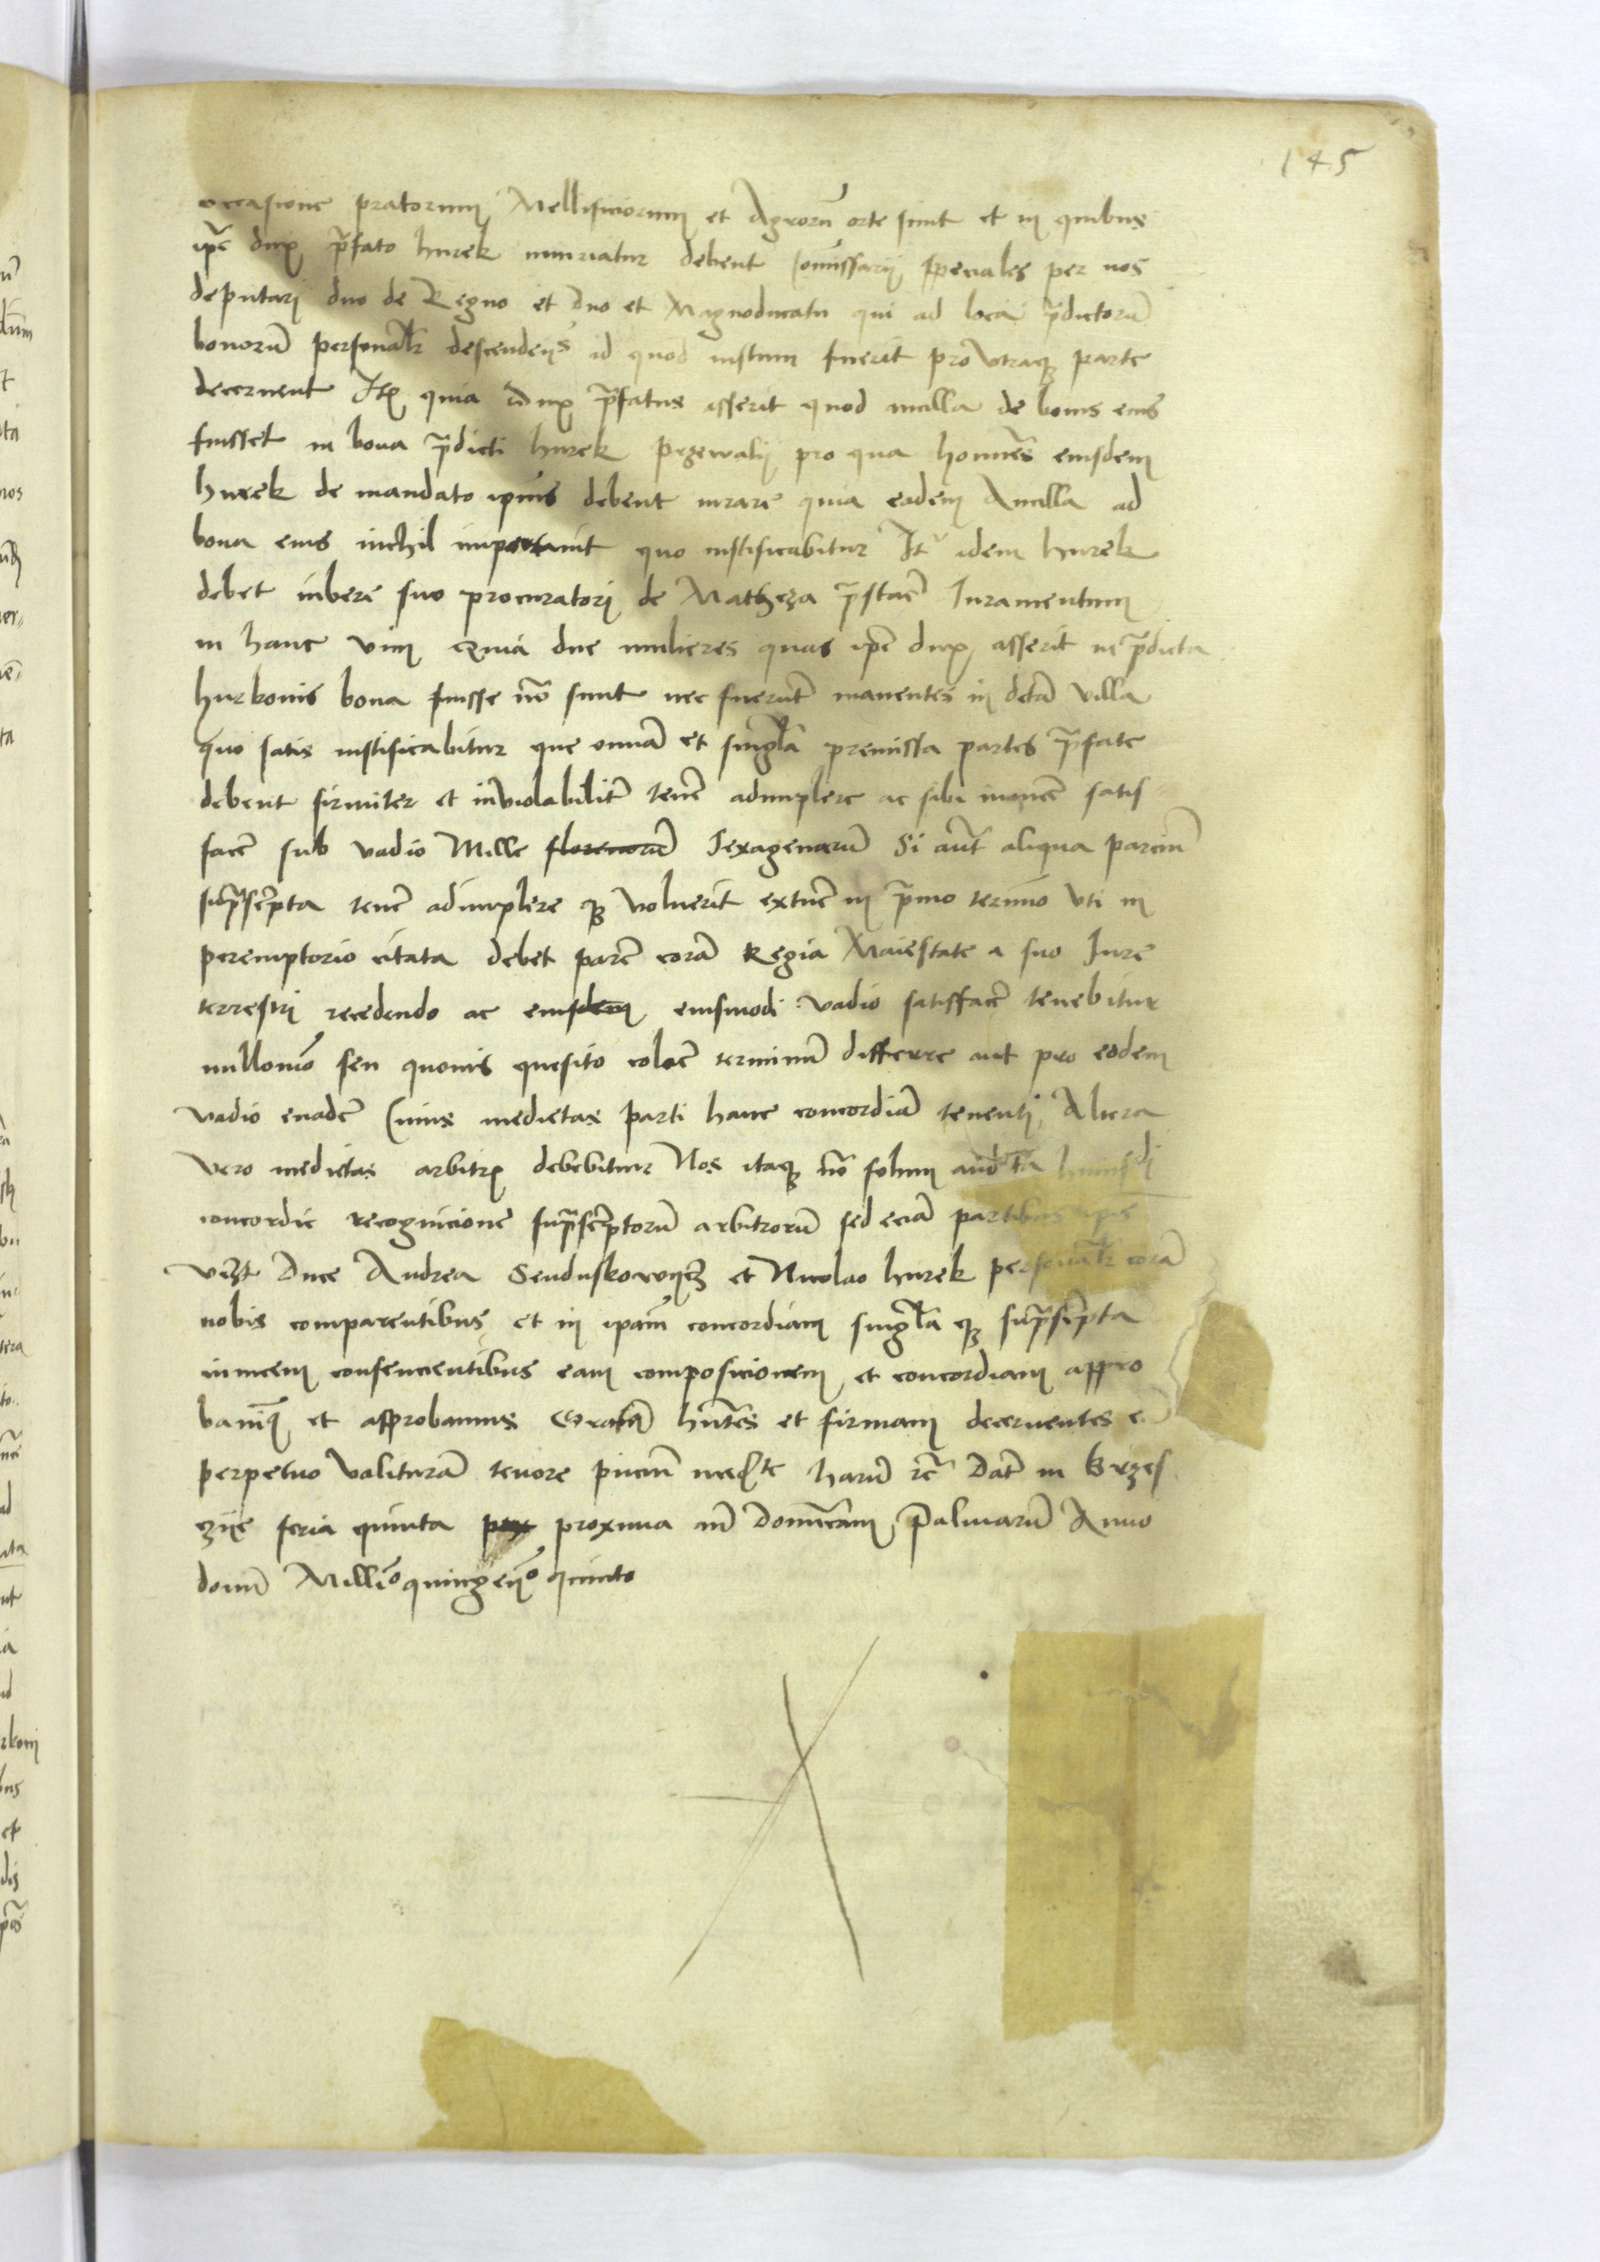 145
occasione pratorum Mellificiorum et Agrorũ orte sunt et in quibus
ip̃e dux p̃fato hurek iniuriatur debent Com̃issarij speciales per nos
deputari duo de Regno et duo et Magnoducatu qui ad loca p̃dictorũ
bonorũ personalr̃ descendeñs id quod iustum fuerit pro vtraq3 parte
decernent Itẽ quia dux p̃fatus asserit quod ancilla de bonis eius
fuisset in bona p̃dicti hurek pro qua homĩes eiusdem
hurek de mandato ipius debent iurare quia eadem Ancilla ad
bona eius nichil importauit quo iustificabitur It̃ idem hurek
debet iubere suo procuratori de p̃starẽ Iuramentum
in hanc vim Quia due mulieres quas ip̃e dux asserit in p̃dicta
hurkonis bona fuisse nõ sunt nec fuerũt manentes in dcta villa
quo satis iustificabitur que omnia et singl̃a premissa partes p̃fate
debent firmiter et inviolabilit̃ tenẽ adimplere ac sibi inuicẽ satis
facẽ sub vadio Mille florenorũ Sexagenarũ Si aut̃ aliqua parciũ
sup̃sc̃pta tenẽ adimplere q3 voluerit extũc in p̃mo termĩo vti in
peremptorio citata debet parẽ corã Regia Maiestate a suo Iure
terrestri recedendo ac eiusdem eiusmodi vadio satisfacẽ tenebitur
nullomõ seu quouis quesito colorẽ terminũ differre aut pro eodem
vadio euadẽ Cuius medietas parti hanc concordiã tenenti Altera
vero medietas arbitrꝫ debebitur Nos itaq3 nõ solum
concordie recognicione sup̃sc̃ptorũ arbitrorũ sed eciã partibus ip̃is
vicꝫt Duce Andrea et Nicolao hurek personalr̃ corã
nobis comparentibus et in ipam concordiam singl̃a q3 sup̃sc̃pta
inuicem consencientibus eam composicionem et concordiam appro
bauĩq3 et approbamus Gratã hñtes et firmam decernentes eã
perpetuo valiturã tenore harũ rc̃ Dat̃ in Brzes
ziie feria quinta pox proxima an̄ Domĩcam Palmarũ Anno
domĩ Millĩo quingenĩo quinto